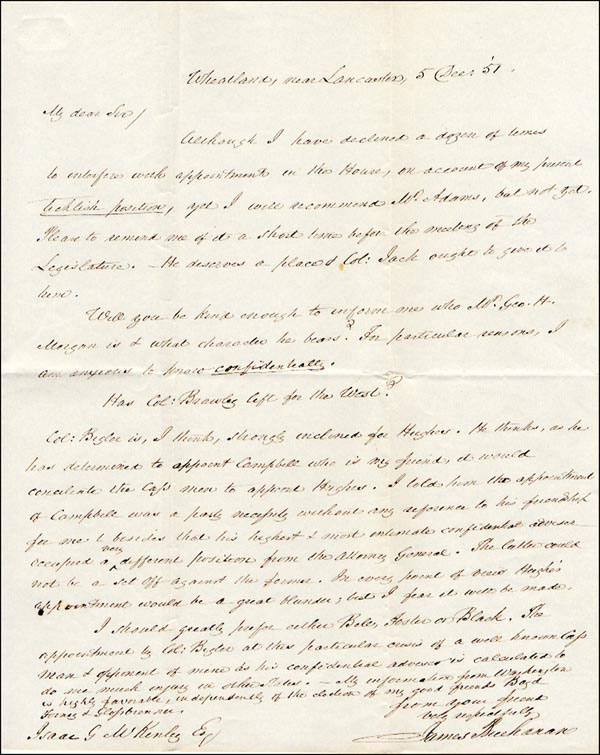 Wheatland, near Lancaster, 5 Dec: '51.
My dear Sir/
Although I have declined a dozen of times
to interfere with appointments in the House, on account of my present
ticklish position, yet I will recommend Mr. Adams, but not yet.
Please to remind me of it a short time before the meeting of the
Legislature. — He deserves a place & Col: Jack ought to give it to
him.
Will you be kind enough to inform me who Mr. Geo. H.
Morgan is & what character he bears? For particular reasons, I
am anxious to know confidentially.
Has Col: Brawley left for the West?
Col: Bigler is, I think, strongly inclined for Hughes. He thinks, as he
has determined to appoint Campbell who is my friend, it would
conciliate the Cass men to appoint Hughes. I told him the appointment
of Campbell was a party necessity without any reference to his friendship
for me & besides that his highest & most intimate confidential adviser
occupied a very different position from the Attorney General. The latter could
not be a set off against the former. In every point of view Hughes'
appointment would be a great blunder; but I fear it will be made.
I should greatly prefer either Foster or Black. The
appointment by Col: Bigler at this particular crisis of a well known Cass
man & opponent of mine as his confidential adviser is calculated to
do me much injury in other States. — My information from Washington
is highly favorable, independently of the election of my good friends Boyd
Forney & Glossbrenner
from your friend
very respectfully
James Buchanan
Isaac G. McKinley Esq